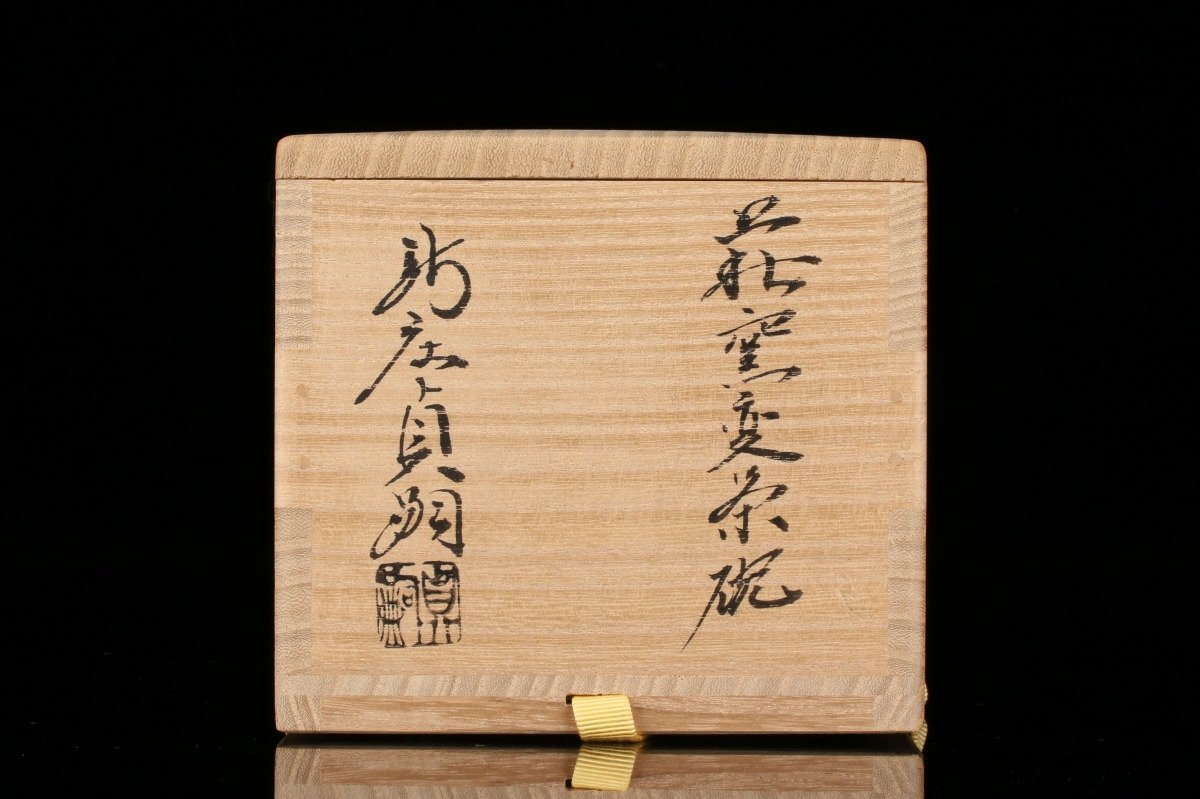 萩窯変茶碗
新庄貞嗣
貞嗣